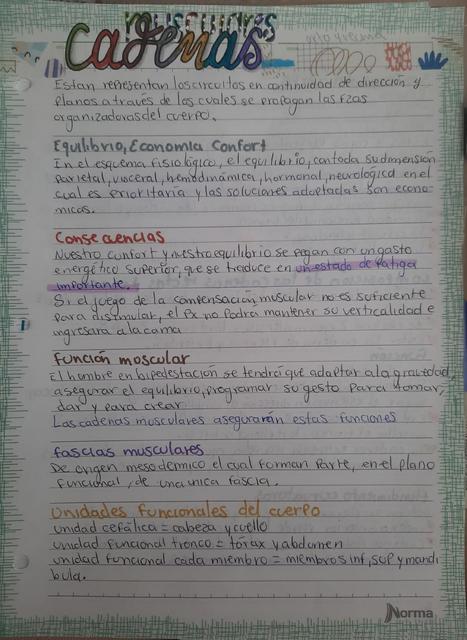 musculares
Cadenas
Estan representan los circuitos en continuidad de dirección y
planos a través de los cuales se propagan las fzas
organizadoras del cuerpo.
Equilibrio, Economia Confort
En el esquema fisiológico, el equilibrio, con toda su dimensión
parietal, visceral, hemodinámica, hormonal, neurológica en el
cual es prioritaria y las soluciones adaptadas son econo-
micas.
Consecuencias
Nuestro confort y nuestro equilibrio se pagan con un gasto
energético superior, que se traduce en un estado de fatiga
importante.
Si el juego de la compensación muscular no es suficiente
para disimular, el Px no podrá mantener su verticalidad e
ingresará a la cama
Función moscular
El hombre en bipedestación se tendrá que adaptar a la gravedad,
asegurar el equilibrio, programar su gesto para tomar,
dar y para crear
Las cadenas musculares asegurarán estas funciones
fascias musculares
De origen mesodérmico el cual forman parte, en el plano
funcional, de una unica fascia.
Unidades funcionales del cuerpo
unidad cefálica = cabeza y cuello
unidad funcional tronco = tórax y abdomen
unidad funcional cada miembro = miembros inf, sup y mandi
bula.
Norma